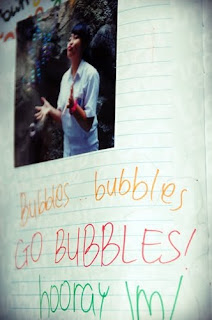 Bubbles.. bubbles
GO BUBBLES!
hooray \m/